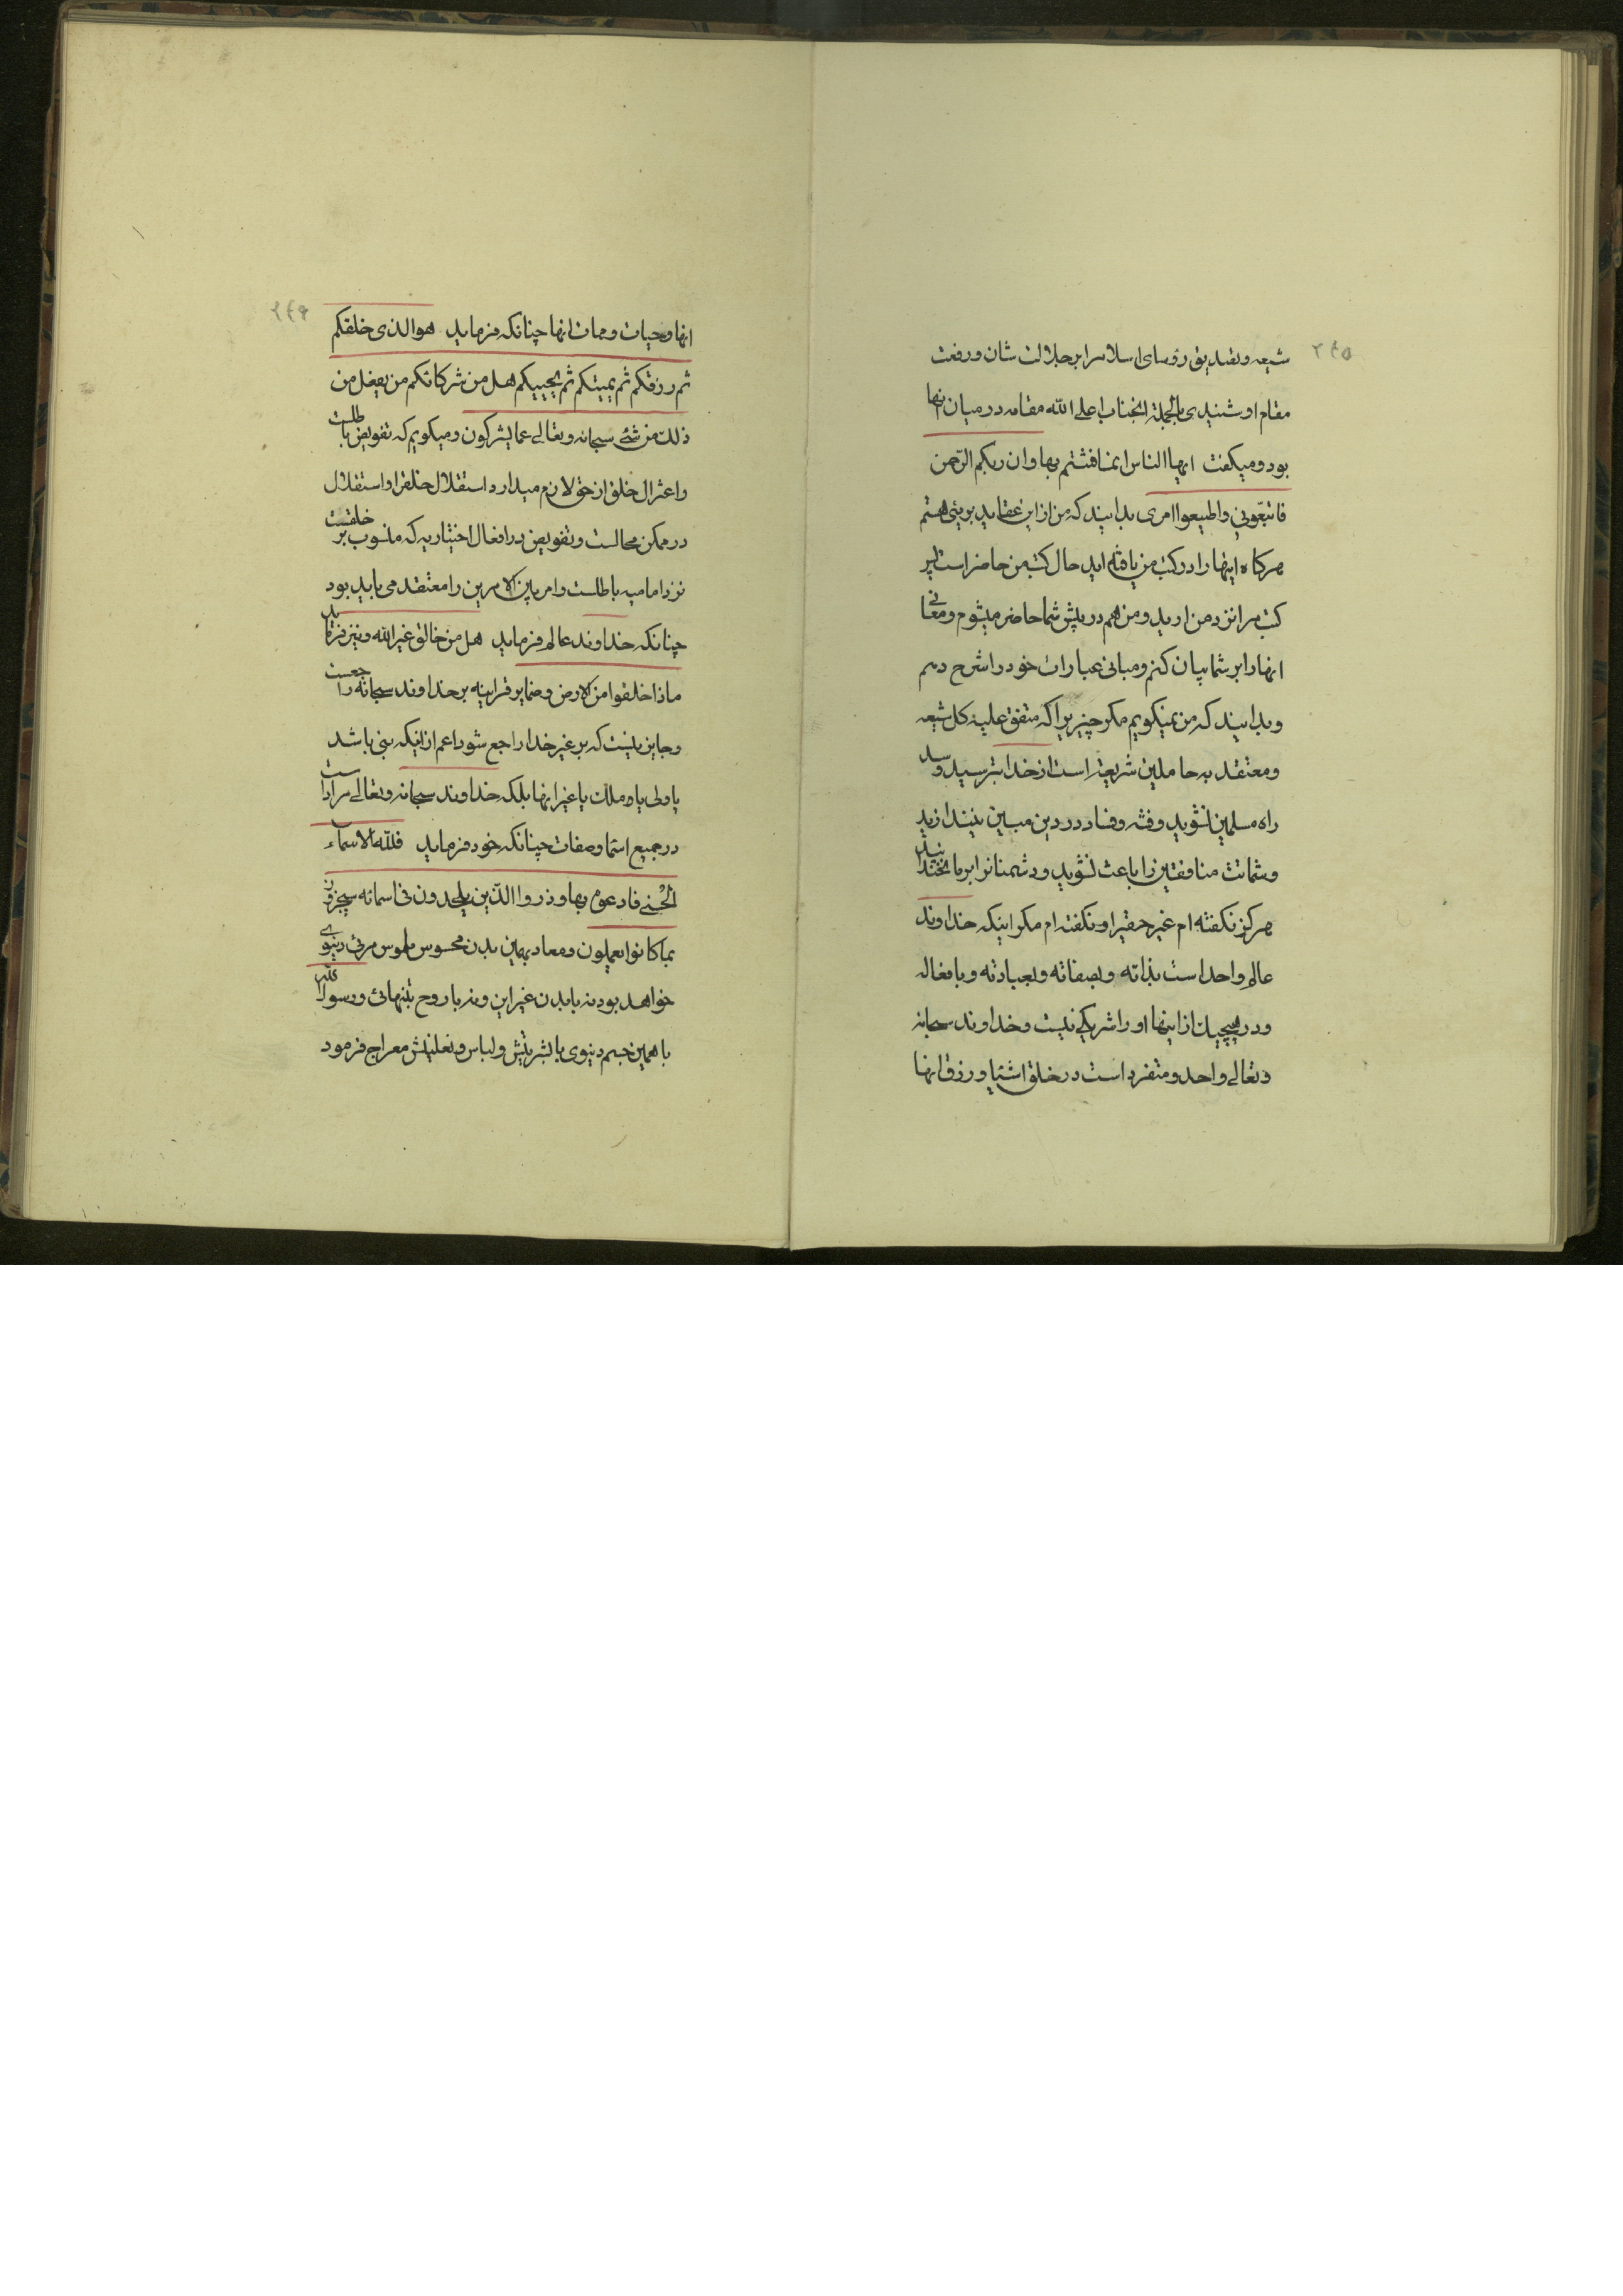 ۲۴۵
شیعه و تصدیق رؤسای اسلام را بر جلالت شان و رفعت
مقام او شنیدی بالجمله انجناب اعلی الله مقامه در میان انها
بود و میکفت ایها الناس انما فتنتم بها وان ربکم الرّحمن
فاتبّعونی واطیعوا امری بدانیند که من از این عقاید بریئی هستم
هرکاه اینها را در کتب من یافته اید حال کتب من حاضر است پس
کتب مرا نزد من ارید و من هم در پیش شما حاضر میشوم و معانی
انها را بر شما بیان کنم و مبانی عبارات خود را شرح دهم
و بدانیند که من نمیکویم مکر چیزیرا که متفق علیه کل شیعه
و معتقد به حاملین شریعة است از خدا بترسید و سد
راه مسلمین نشوید و فتنه و فساد در دین مبین نیندازید
و شماتت منافقین را باعث نشوید و دشمنانرا بر ما نخندانید
هرکز نکفته ام غیر حقیرا و نکفته ام مکر اینکه خداوند
عالم واحد است بذاته و بصفاته و بعبادته و بافعاله
و در هیچیک از اینها او را شریکی نیست و خداوند سبحانه
و تعالی واحد و متفرد است در خلق اشیا و رزق انها
۲۴۶
انها و حیات و ممات انها چنانکه فرماید هو الذی خلقکم
ثم رزقکم ثم یمیتکم ثم یحییکم هل من شرکائکم من یفعل من
ذلک من شئ سبحانه و تعالی عما یشرکون و میکویم که تفویض باطلست
واعتزال خلق از حق لازم میدارد استقلال خلق را و استقلال
در ممکن محالست و تفویض در افعال اختیاریه که منسوب بر خلقست
نزد امامیه باطلست و امر بین الامرین را معتقد می باید بود
چنانکه خداوند عالم فرماید هل من خالق غیر الله و نیز فرماید
ماذا خلقوا من الارض و ضمایر قرانیه بر خداوند سبحانه راجعست
و جایز نیست که بر غیر خدا راجع شود اعم از اینکه نبی باشد
یا ولی یا ملک یا غیر انها بلکه خداوند سبحانه و تعالی مراد است
در جمیع اسما و صفات چنانکه خود فرماید فلله الاسماء
الحُسنی فادعوه بها وذروا الذّین یلحدون فی اسمائه سیجزون
بما کانوا یعملون و معاد بهمین بدن محسوس ملموس مرئی دنیوی
خواهد بود نه با بدن غیر این و نه با روح بتنهائی و رسول الله
با همین جسم دنیوی با بشریتش و لباس و نعلینش معراج فرمود